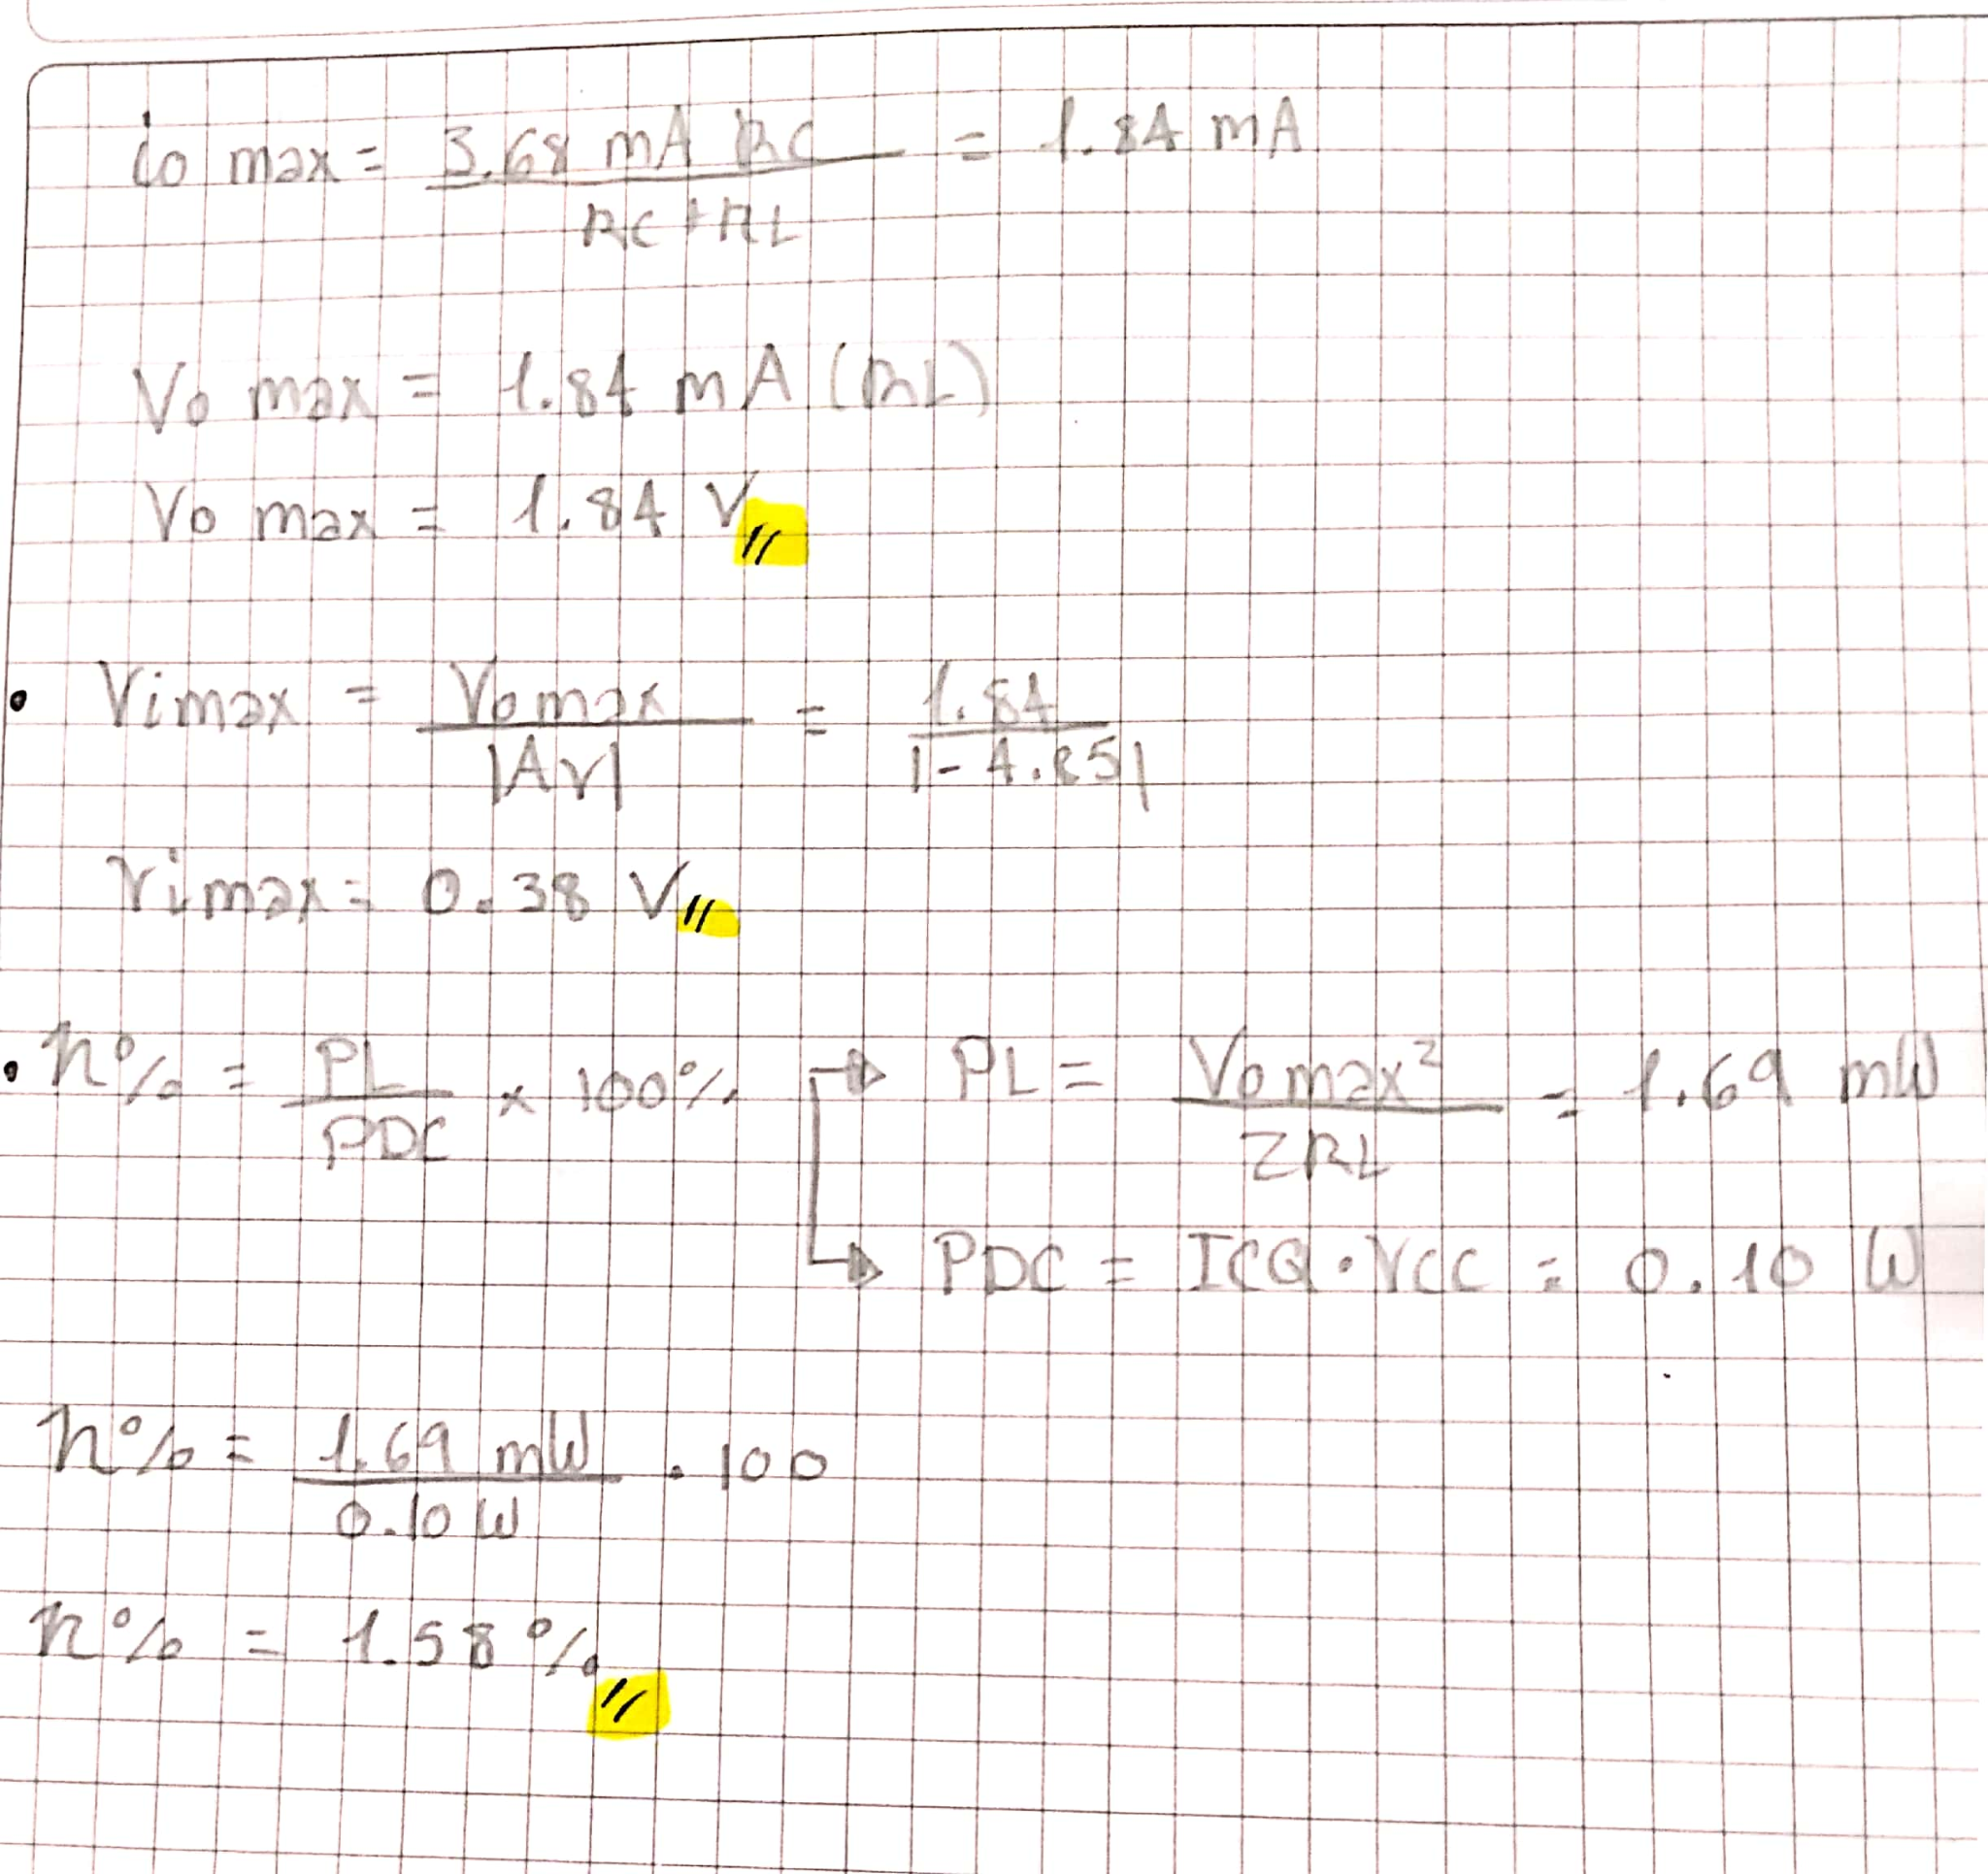 io max = 3.68 mA RC / RC + RL = 1.84 mA
Vo max = 1.84 mA (RL)
Vo max = 1.84 V //
• Vimax = Vomax / |Av| = 1.84 / |-4.85|
Vimax = 0.38 V //
• n% = PL / PDC x 100% → PL = Vomax² / 2RL = 1.69 mW
→ PDC = ICQ • VCC = 0.10 W
n% = 1.69 mW / 0.10 W . 100
n% = 1.58 % //